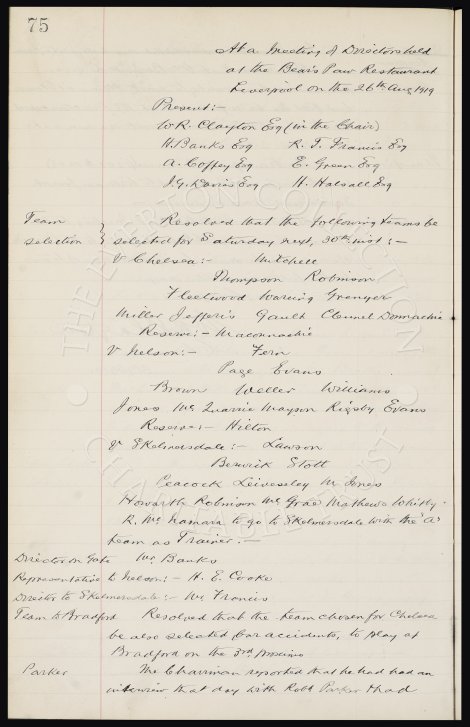 75
At a Meeting of Directors held
at the Bear's Paw Restaurant
Liverpool on the 26th Aug 1919
Present:-
W.R. Clayton Esq (in the Chair)
H. Banks Esq R. T. Francis Esq
A. Coffey Esq E. Green Esq
J.G. Davies Esq H. Halsall Esq
Team Resolved that the following teams be
selection } selected for Saturday next, 30th inst:-
V Chelsea:- Mitchell
Thompson Robinson
Fleetwood Wareing Grenyer
Miller Jefferis Gault Clennel Donnachie
Reserve:- Maconnachie
V Nelson:- Fern
Page Evans
Brown Weller Williams
Jones Mc Quarrie Mayson Rigsby Evans
Reserve:- Hilton
V Skelmersdale:- Lawson
Berwick Stott
Peacock Leivesley M Jones
Howarth Robinson Mc Grae Mathews Whitby
R. Mc Namara to go to Skelmersdale with the "A"
team as Trainer.-
Director on Gate Mr Banks
Representative to Nelson:- H. E. Cooke
Director to Skelmersdale:- Mr Francis
Team to Bradford Resolved that the team chosen for Chelsea
be also selected, bar accidents, to play at
Bradford on the 3rd proximo
Parker The Chairman reported that he had had an
interview that day with Robt Parker & had
THE EVERTON COLLECTION
CHARITABLE TRUST